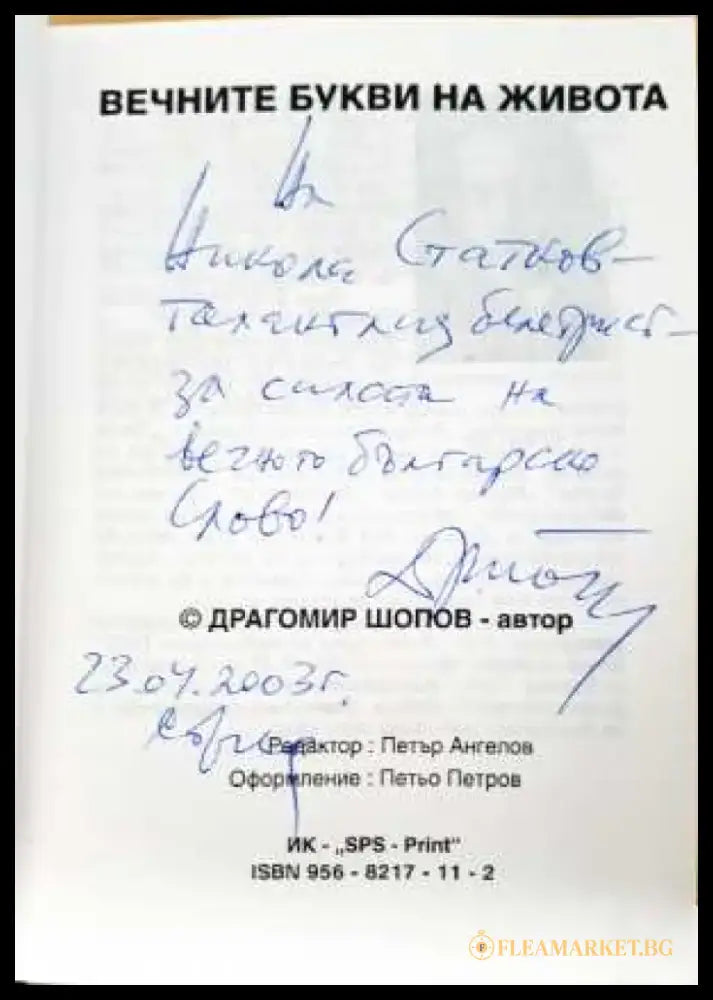 ВЕЧНИТЕ БУКВИ НА ЖИВОТА
На
Никола Статков –
талантлив белетрист –
за силата на
вечното българско
Слово!
© ДРАГОМИР ШОПОВ - автор
23.04.2003г.
София
Редактор : Петър Ангелов
Оформление : Петьо Петров
ИК - „SPS - Print“
ISBN 956 - 8217 - 11 - 2
FLEAMARKET.BG